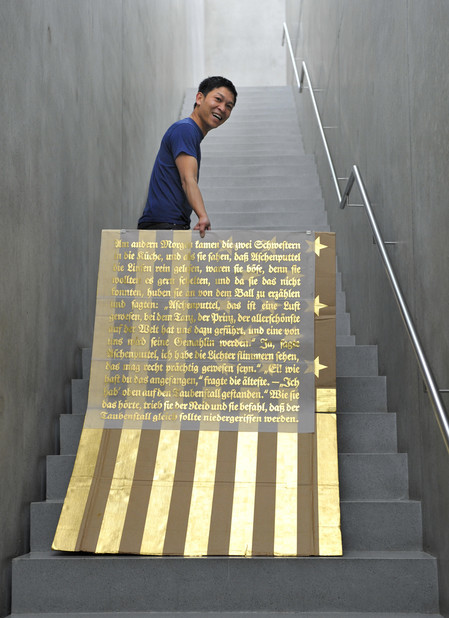 Am andern Morgen kamen die zwei Schwestern
in die Küche, und als sie sahen, daß Aschenputtel
die Linsen rein gelesen, waren sie böse, denn sie
wollten es gern schelten, und da sie das nicht
konnten, huben sie an von dem Ball zu erzählen
und sagten: „Aschenputtel, das ist eine Lust
gewesen, bei dem Tanz, der Prinz, der allerschönste
auf der Welt hat uns dazu geführt, und eine von
uns wird seine Gemahlin werden.“ „Ja, sagte
Aschenputtel, ich habe die Lichter flimmern sehen,
das mag recht prächtig gewesen seyn.“ „Ei! wie
hast du das angefangen,“ fragte die älteste. — „Ich
hab' oben auf den Taubenstall gestanden.“ Wie sie
das hörte, trieb sie der Neid und sie befahl, daß der
Taubenstall gleich sollte niedergerissen werden.